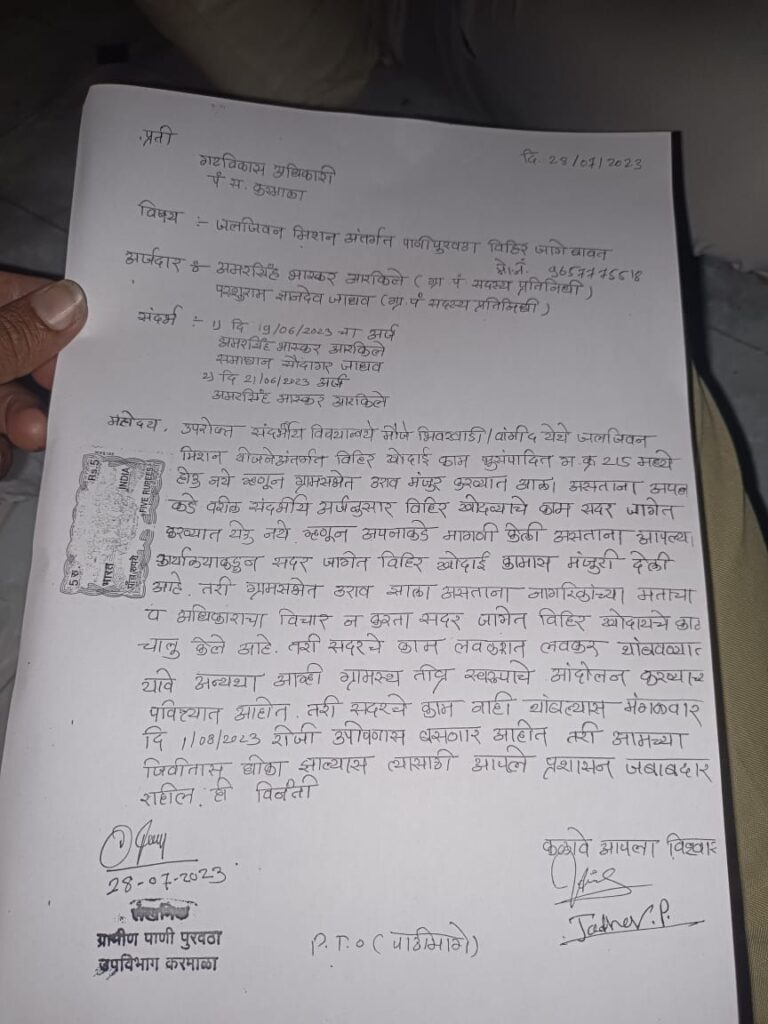 प्रती
दि. 28/07/2023
गटविकास अधिकारी
पं स. करमाळा
विषय :- जलजिवन मिशन अंतर्गत पाणीपुरवठा विहिर जागे बाबत
मो.नं. 9657775518
अर्जदार :- अमरसिंह भास्कर आरकिले ( ग्रा पं सदस्य प्रतिनिधी )
परशुराम ज्ञानदेव जाधव ( ग्रा. पं सदस्य प्रतिनिधी )
संदर्भ :- 1) दि 19/06/2023 चा अर्ज
अमरसिंह भास्कर आरकिले
समाधान सौदागर जाधव
2) दि 21/06/2023 अर्ज
अमरसिंह भास्कर आरकिले
महोदय, उपरोक्त संदर्भीय विषयान्वये मौजे भिवरवाडी/वांगीद येथे जलजिवन
मिशन योजनेअंतर्गत विहिर खोदाई काम भुसंपादित ग.क्र 215 मध्ये
होऊ नये म्हणून ग्रामसभेत ठराव मंजुर करण्यात आला असताना आपण
कडे वरील संदर्भीय अर्जनुसार विहिर खोदव्याचे काम सदर जागेत
करण्यात येऊ नये. म्हणून अपनाकडे मागणी केली असताना आपल्या
कार्यालयाकडुन सदर जागेत विहिर खोदाई कामास मंजुरी देली
आहे. तरी ग्रामसभेत ठराव झाला असताना नागरिकांच्या मताचा
व अधिकाराचा विचार न करता सदर जागेत विहिर खोदायचे काम
चालु केले आहे. तरी सदरचे काम लवकरात लवकर थांबवण्यात
यावे अन्यथा आम्ही ग्रामस्थ तीव्र स्वरूपाचे आंदोलन करण्याच
पवित्र्यात आहोत. तरी सदरचे काम नाही थांबल्यास मंगळवार
दि 1/08/2023 रोजी उपोषणास बसणार आहोत तरी आमच्या
जिवीतास धोका झाल्यास त्यासाठी आपले प्रशासन जबाबदार
राहील. ही विनंती
Rs.5
INDIA
FIVE RUPEES
5 रु
भारत
पाँच रुपये
कळावे आपला विश्वास
28-07-2023
ग्रामीण पाणी पुरवठा
उपविभाग करमाळा
Jadhav.P.
P.T.O (पाठीमागे)